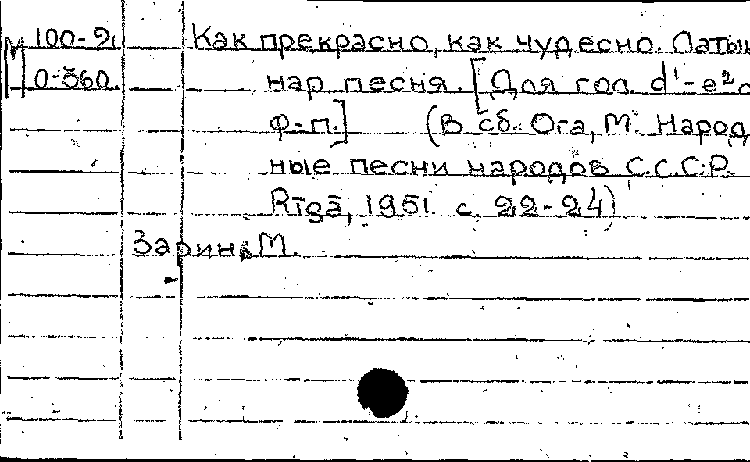 М 100-21 Как прекрасно, как чудесно. Латыш
0-360. нар песня. [Для гол. d¹-e² с
ф-п.] (В сб.: Ога, М. Народ
ные песни народов С.С.С.Р.
Rīgā, 1951. с. 22-24)
Зарин, М.